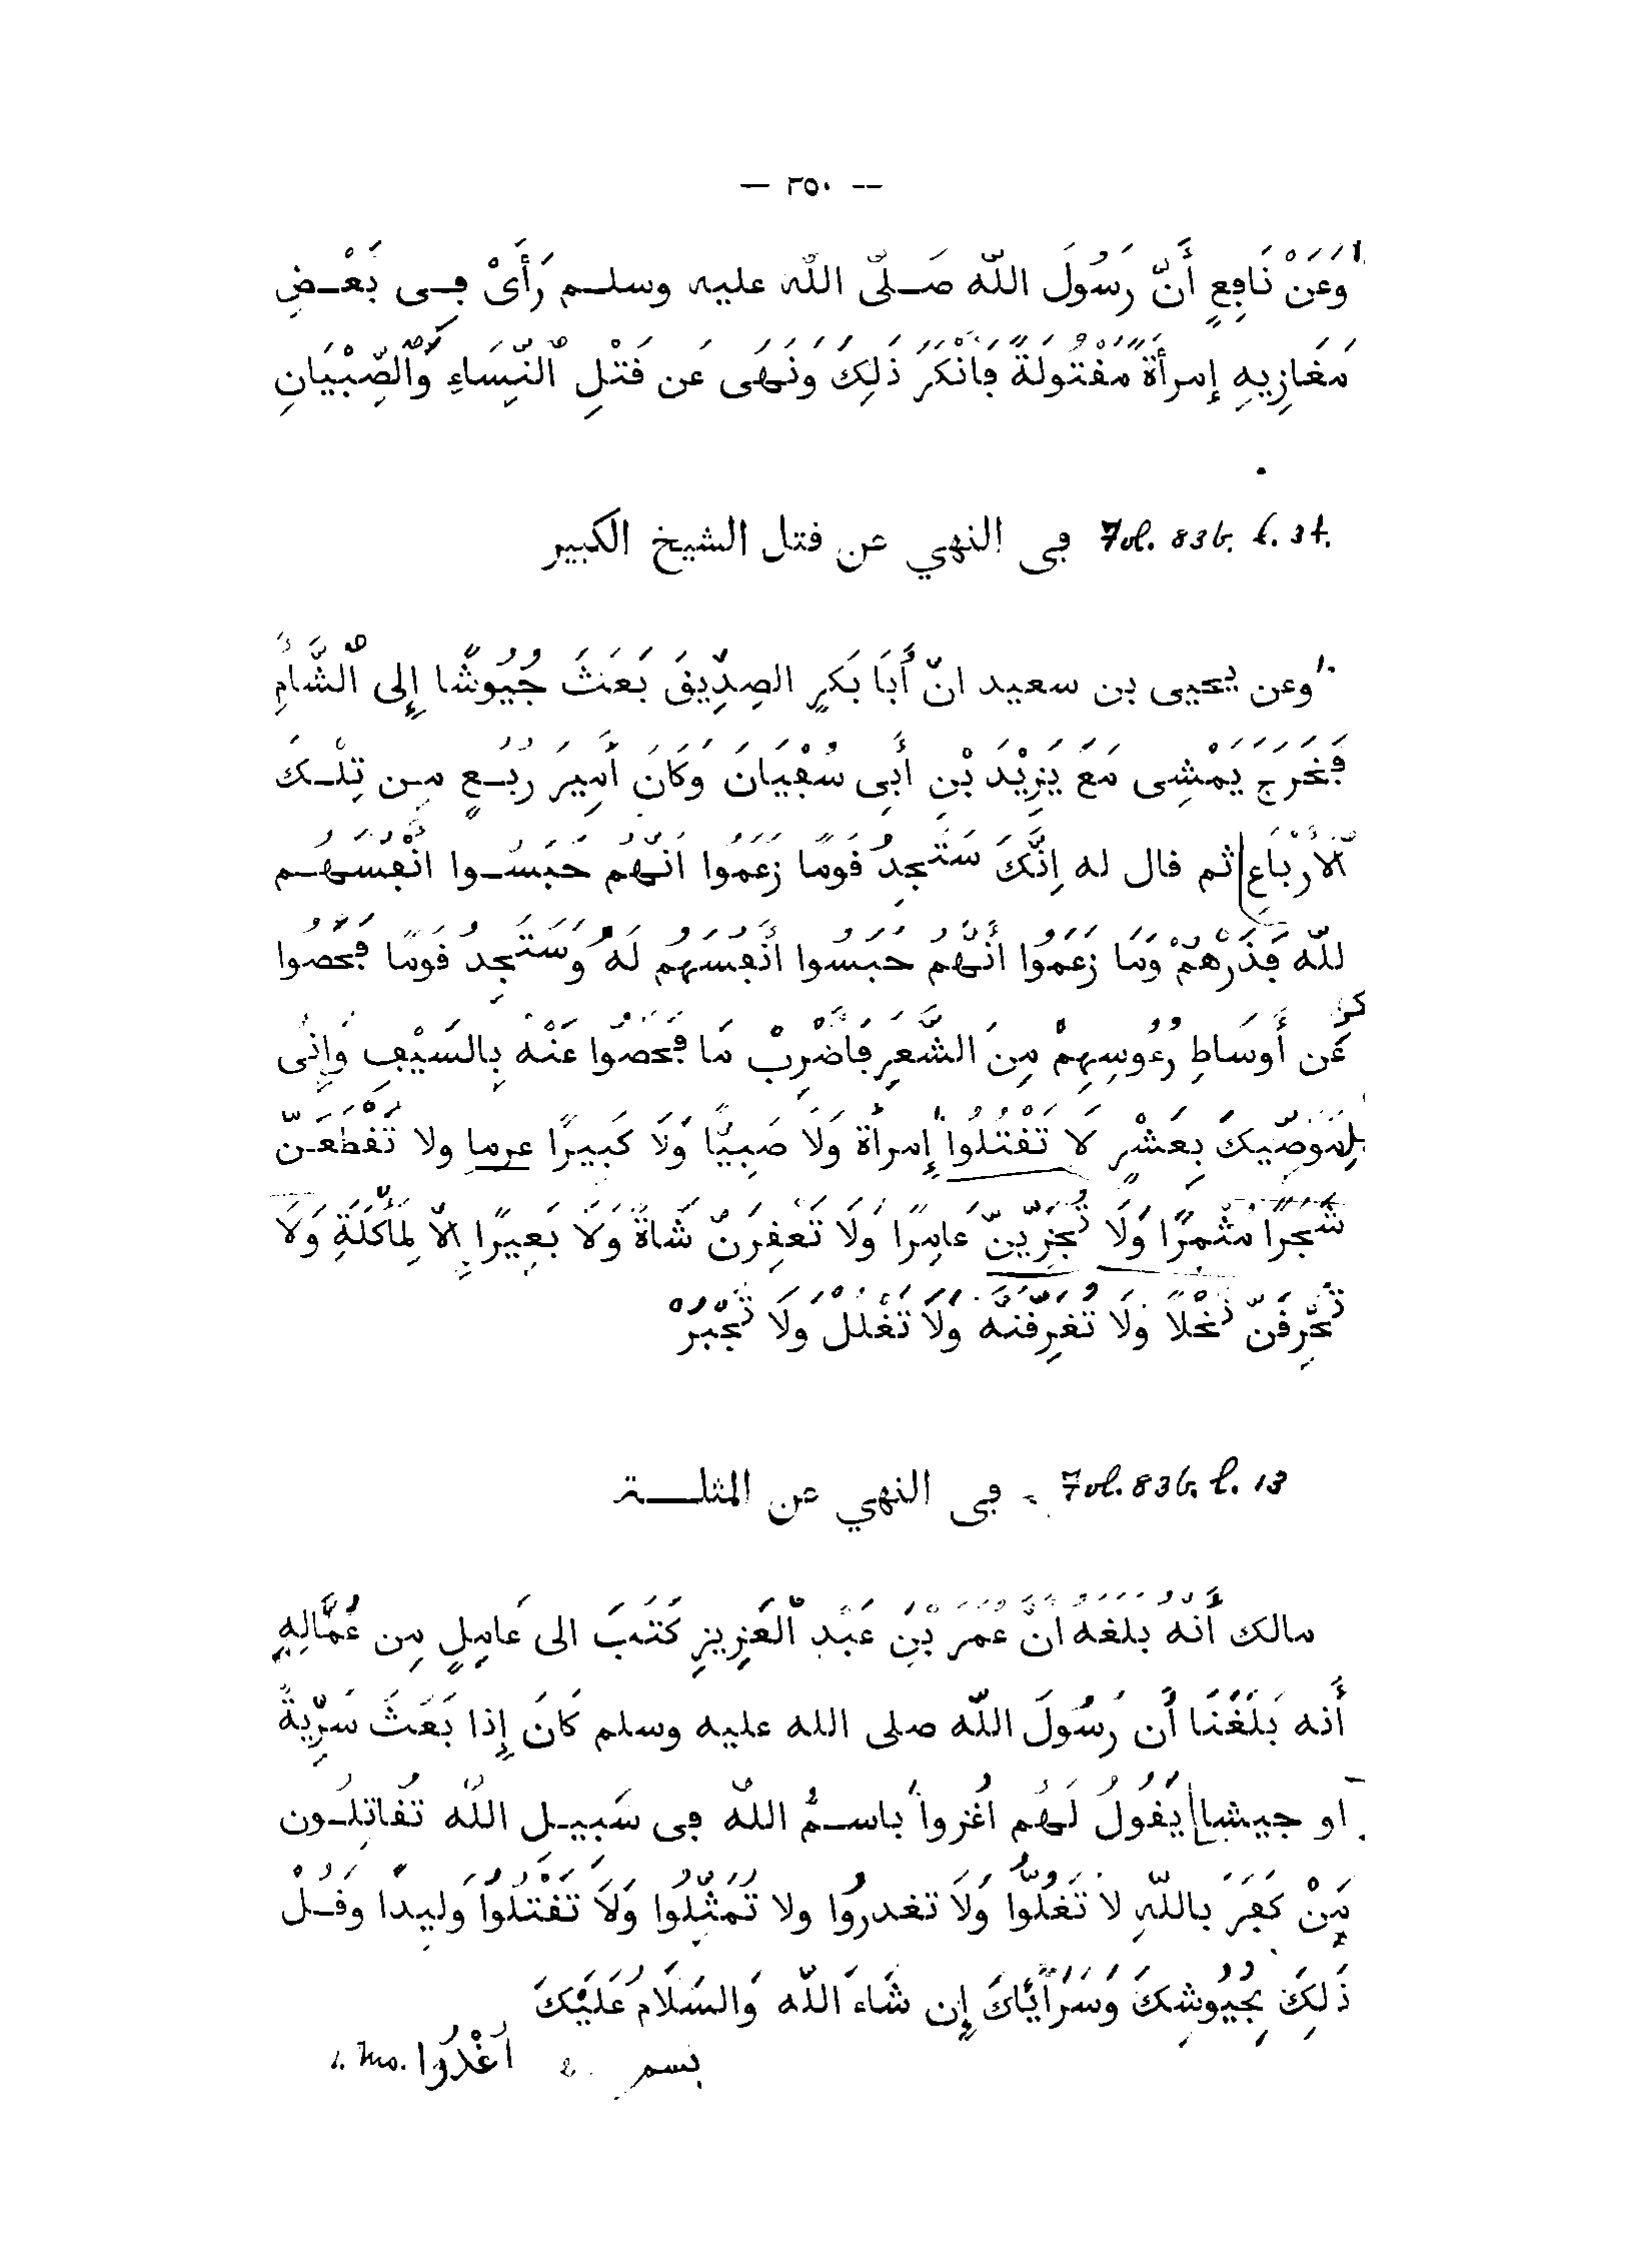 — ٣٥٠ —
وَعَنْ نَافِعٍ أَنَّ رَسُولَ اللّٰه صَلَّى اللّٰه عليه وسلم رَأَىْ فِى بَعْضِ
مَغَازِيهِ إِمرأَةً مَقْتُولَةً فَأَنْكَرَ ذَلِكَ وَنَهَى عَن قَتْلِ النِّسَاءِ وَالصِّبْيَانِ
Fol. 83 b. l. 31. فى النهي عن قتل الشيخ الكبير
وعن يحيى بن سعيد انّ أَبَا بَكرٍ الصِدِّيقَ بَعَثَ جُيُوشًا إِلى الشَّأمِ
فَخَرَجَ يَمْشِى مَعَ يَزِيْدَ بْنِ أَبِى سُفْيَانَ وَكَانَ أَمِيرَ رُبُعٍ مِن تِلْكَ
الأَرْبَاعِ ثم قال له إِنَّكَ سَتَجِدُ قَومًا زَعَمُوا أَنَّهُم حَبَسُوا أَنْفُسَهُم
للّٰه فَذَرْهُمْ وَمَا زَعَمُوا أَنَّهُم حَبَسُوا أَنْفُسَهُم لَهُ وَسَتَجِدُ قَومًا فَحَصُوا
عَن أَوسَاطِ رُءوسِهِمْ مِنَ الشَّعَرِ فَاضْرِبْ مَا فَحَصُوا عَنْهُ بِالسَيْفِ وَإِنِّى
مُوَصِّيكَ بِعَشْرٍ لَا تَقْتُلُوا إِمرأَةً وَلَا صَبِيًّا وَلَا كَبِيرًا هرما ولا تَقْطَعَنّ
شَجَرًا مُثْمِرًا وَلَا تُخَرِّبَنَّ عَامِرًا وَلَا تَعْقِرَنَّ شَاةً وَلَا بَعِيرًا إِلاّ لِمَأْكَلَةٍ وَلَا
تُحَرِّقَنَّ نَخْلاً وَلَا تُغَرِقَنَّهُ وَلَا تَغْلُلْ وَلَا تَجْبُنْ
Fol. 83 b. l. 13 فى النهي عن المثلة
مالك أَنَّهُ بلغه أَنَّ عُمَرَ بْنَ عَبْدِ العَزِيزِ كَتَبَ الى عَامِلٍ مِن عُمَّالِهِ
أَنه بَلَغَنَا أَن رَسُولَ اللّٰه صلى الله عليه وسلم كَانَ إِذا بَعَثَ سَرِّيةً
او جيشا يَقُولُ لَهُم اُغزوا باسمُ اللّٰه فِى سَبِيلِ اللّٰه تُقَاتِلُون
مَنْ كَفَرَ بِاللّٰهِ لَا تَغُلُّوا وَلَا تغدرُوا ولا تُمَثِّلُوا وَلَا تَقْتُلُوا وَليدًا وَقُلْ
ذَلِكَ بِجُيُوشِكَ وَسَرَايَاكَ إِن شَاءَ اللّٰه وَالسَلَامُ عَلَيْكَ
بسم اُغْدُرُا